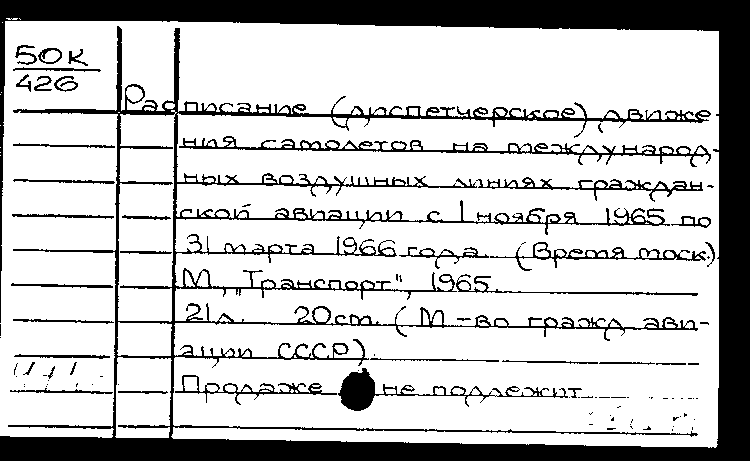 50К
426
Расписание (диспетчерское) движе-
ния самолетов на международ-
ных воздушных линиях граждан-
ской авиации с 1 ноября 1965 по
31 марта 1966 года. (Время моск.)
М., "Транспорт", 1965.
21 л. 20 cm. (М-во гражд. ави-
ации СССР)
Продаже не подлежит